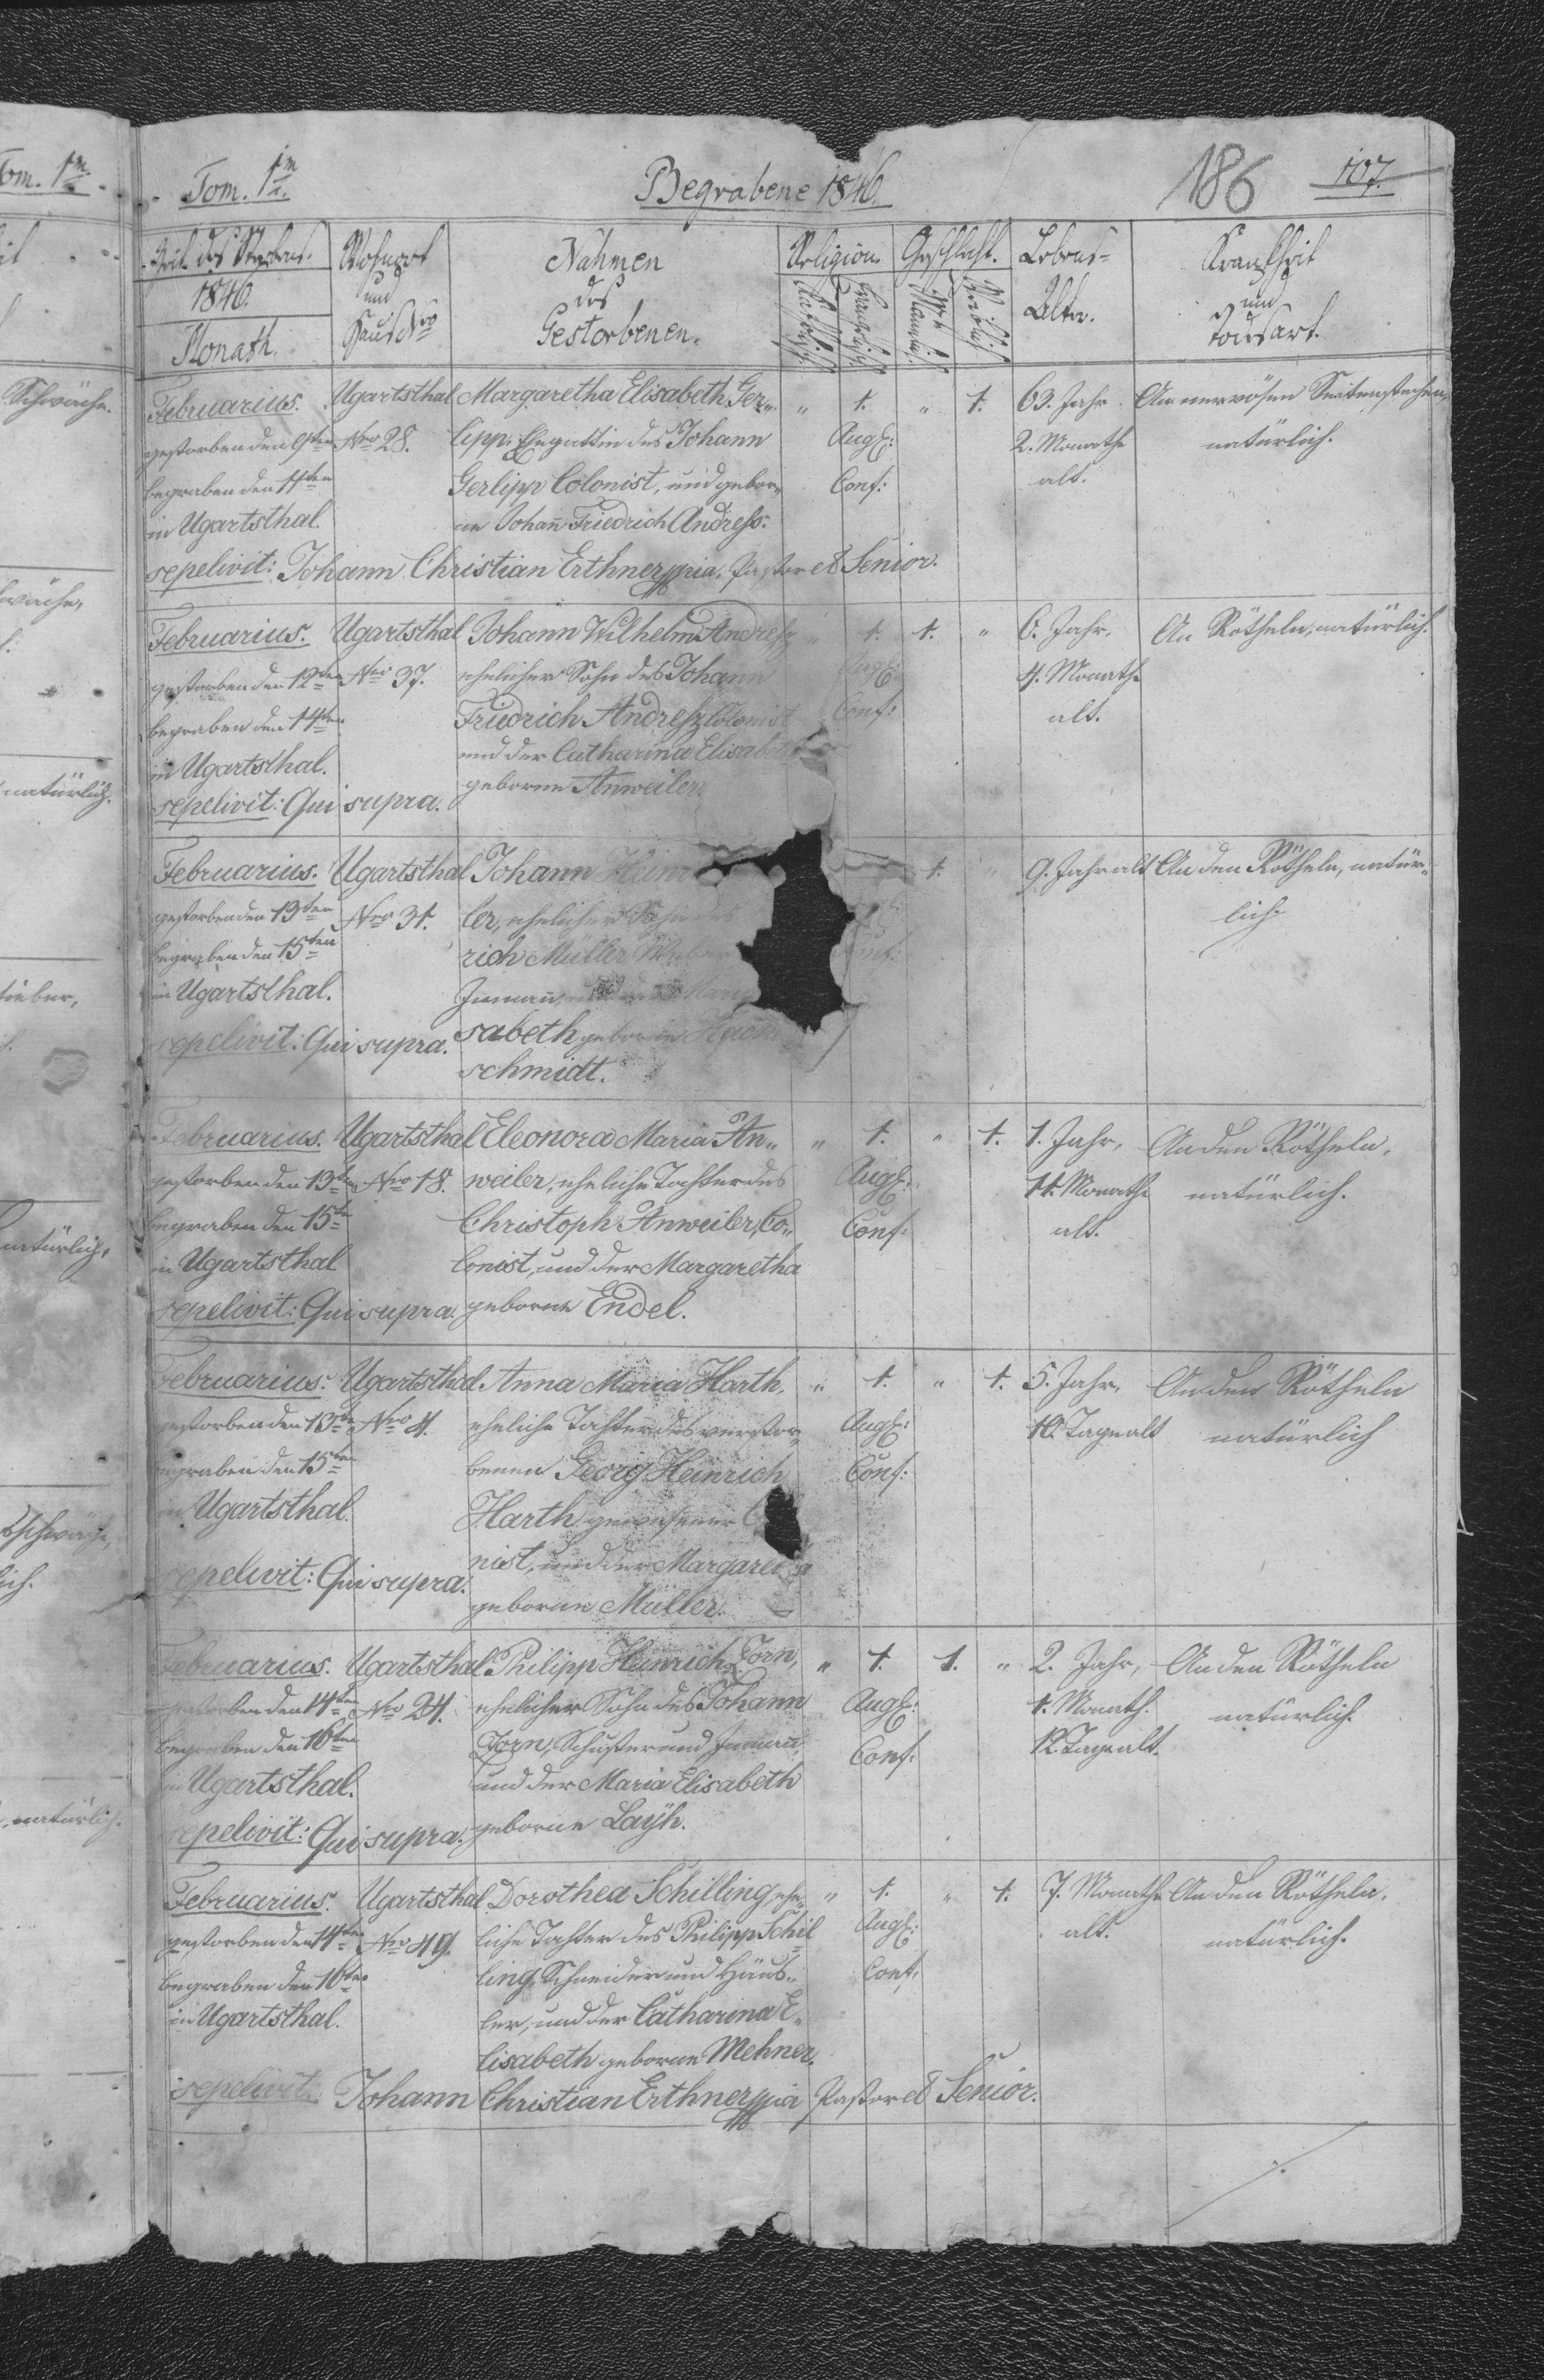 Tom. 1m.
Begrabene 1846.
186
107.
Zeit des Sterbens.
1846.
Monath.
Wohnort
und
Haus Nro
Nahmen
des
Gestorbenen.
Religion.
Katolisch.
Evangelisch.
Geschlecht.
Männlich.
Weiblich.
Lebens-
Alter.
Krankheit
und
Todesart.
Februarius. Ugartsthal Margaretha Elisabeth Ger„ „ 1. „ 1. 63. Jahr Am nervösen Seitenstechen,
gestorben den 9ten Nro 28. lipp, Ehgattin des Johann Augsb: 2. Monathe natürlich.
begraben den 11ten Gerlipp Colonist, und gebor„ Conf: alt.
in Ugartsthal. ne Johann Friedrich Andress.
sepelivit: Johann Christian Erthner mpia, Pastor et Senior.
Februarius. Ugartsthal Johann Wilhelm Andress „ 1. 1. „ 6. Jahr, An Rötheln, natürlich.
gestorben den 12ten Nro 37. ehelicher Sohn des Johann Augsb: 4. Monathe
begraben den 14ten Friedrich Andress Colonist Conf: alt.
in Ugartsthal. und der Catharina Elisabeth
sepelivit: Qui supra. geborne Anweiler.
Februarius. Ugartsthal Johann 1. „ 9. Jahr alt An den Rötheln, natür„
gestorben den 13ten Nro 31. ler, ehelicher Sohn lich.
begraben den 15ten rich Müller Weber Conf:
in Ugartsthal. Inmann, und der
sepelivit: Qui supra. sabeth geborne
schmidt.
Februarius. Ugartsthal Eleonora Maria An„ „ 1. „ 1. 1. Jahr, An den Rötheln,
gestorben den 13ten Nro 18. weiler, eheliche Tochter des Augsb: 11. Monathe natürlich.
begraben den 15ten Christoph Anweiler, Co„ Conf: alt.
in Ugartsthal lonist, und der Margaretha
sepelivit: Qui supra. geborne Endel.
Februarius. Ugartsthal Anna Maria Harth, „ 1. „ 1. 5. Jahr, An den Rötheln
gestorben den 13ten Nro 4. eheliche Tochter des verstor„ Augsb: 10. Tage alt natürlich
begraben den 15ten benen Georg Heinrich Conf:
in Ugartsthal. Harth gewesener
sepelivit: Qui supra. nist, und der Margaretha
geborne Müller.
Februarius. Ugartsthal. Philipp Heinrich Zorn, „ 1. 1. „ 2. Jahr, An den Rötheln
gestorben den 14ten Nro 24. ehelicher Sohn des Johann Augsb: 1. Monath. natürlich.
begraben den 16ten Zorn, Schuster und Inmann, Conf: 12. Tage alt.
in Ugartsthal. und der Maria Elisabeth
sepelivit: Qui supra. geborne Layh.
Februarius. Ugartsthal. Dorothea Schilling, ehe„ „ 1. „ 1. 7. Monathe An den Rötheln,
gestorben den 14ten Nro 49. liche Tochter des Philipp Schil Augsb: alt. natürlich.
begraben den 16ten ling, Schneider und Häus„ Conf:
in Ugartsthal. ler, und der Catharina E„
lisabeth geborne Mehner.
sepelivit: Johann Christian Erthner mpia Pastor et Senior.